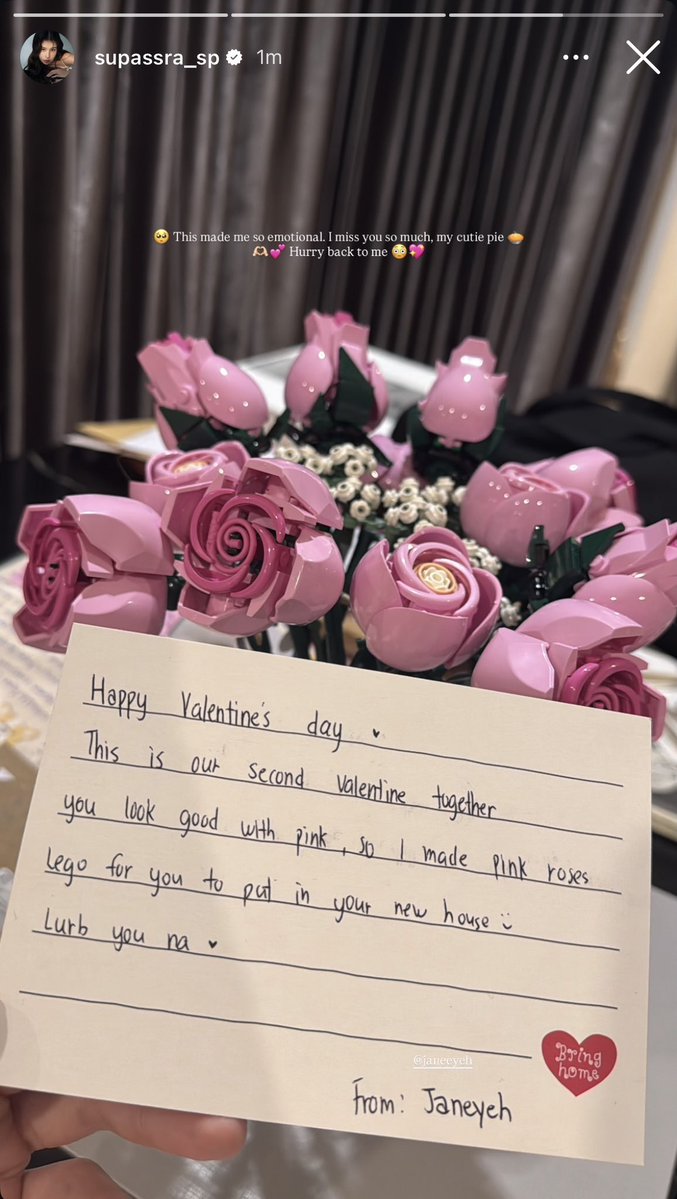 supassra_sp 1m
🥺 This made me so emotional. I miss you so much, my cutie pie 🥧
🫶🏼💕 Hurry back to me 😳💖
Happy Valentine's day ♥
This is our second Valentine together
you look good with pink, so I made pink roses
lego for you to put in your new house ü
Lurb you na ♥
@janeeyeh
Bring
home
From: Janeyeh